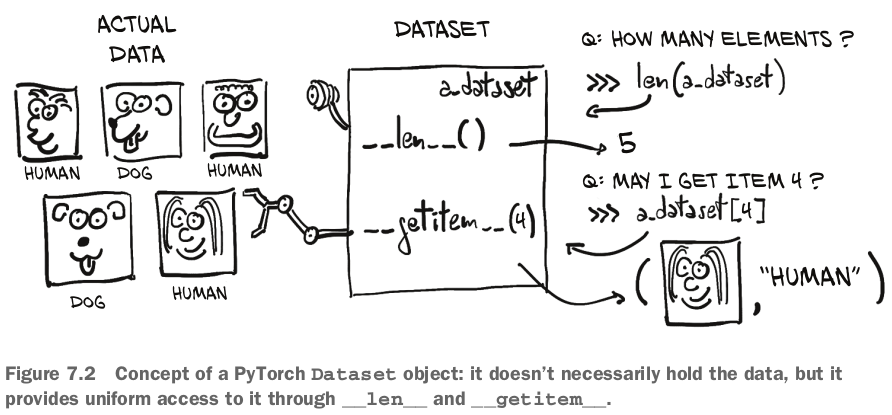 ACTUAL
DATA
HUMAN
DOG
HUMAN
DOG
HUMAN
DATASET
a_dataset
__len__()
__getitem__(4)
Q: HOW MANY ELEMENTS ?
>>> len(a_dataset)
5
Q: MAY I GET ITEM 4 ?
>>> a_dataset[4]
( , "HUMAN" )
Figure 7.2 Concept of a PyTorch Dataset object: it doesn't necessarily hold the data, but it
provides uniform access to it through __len__ and __getitem__.